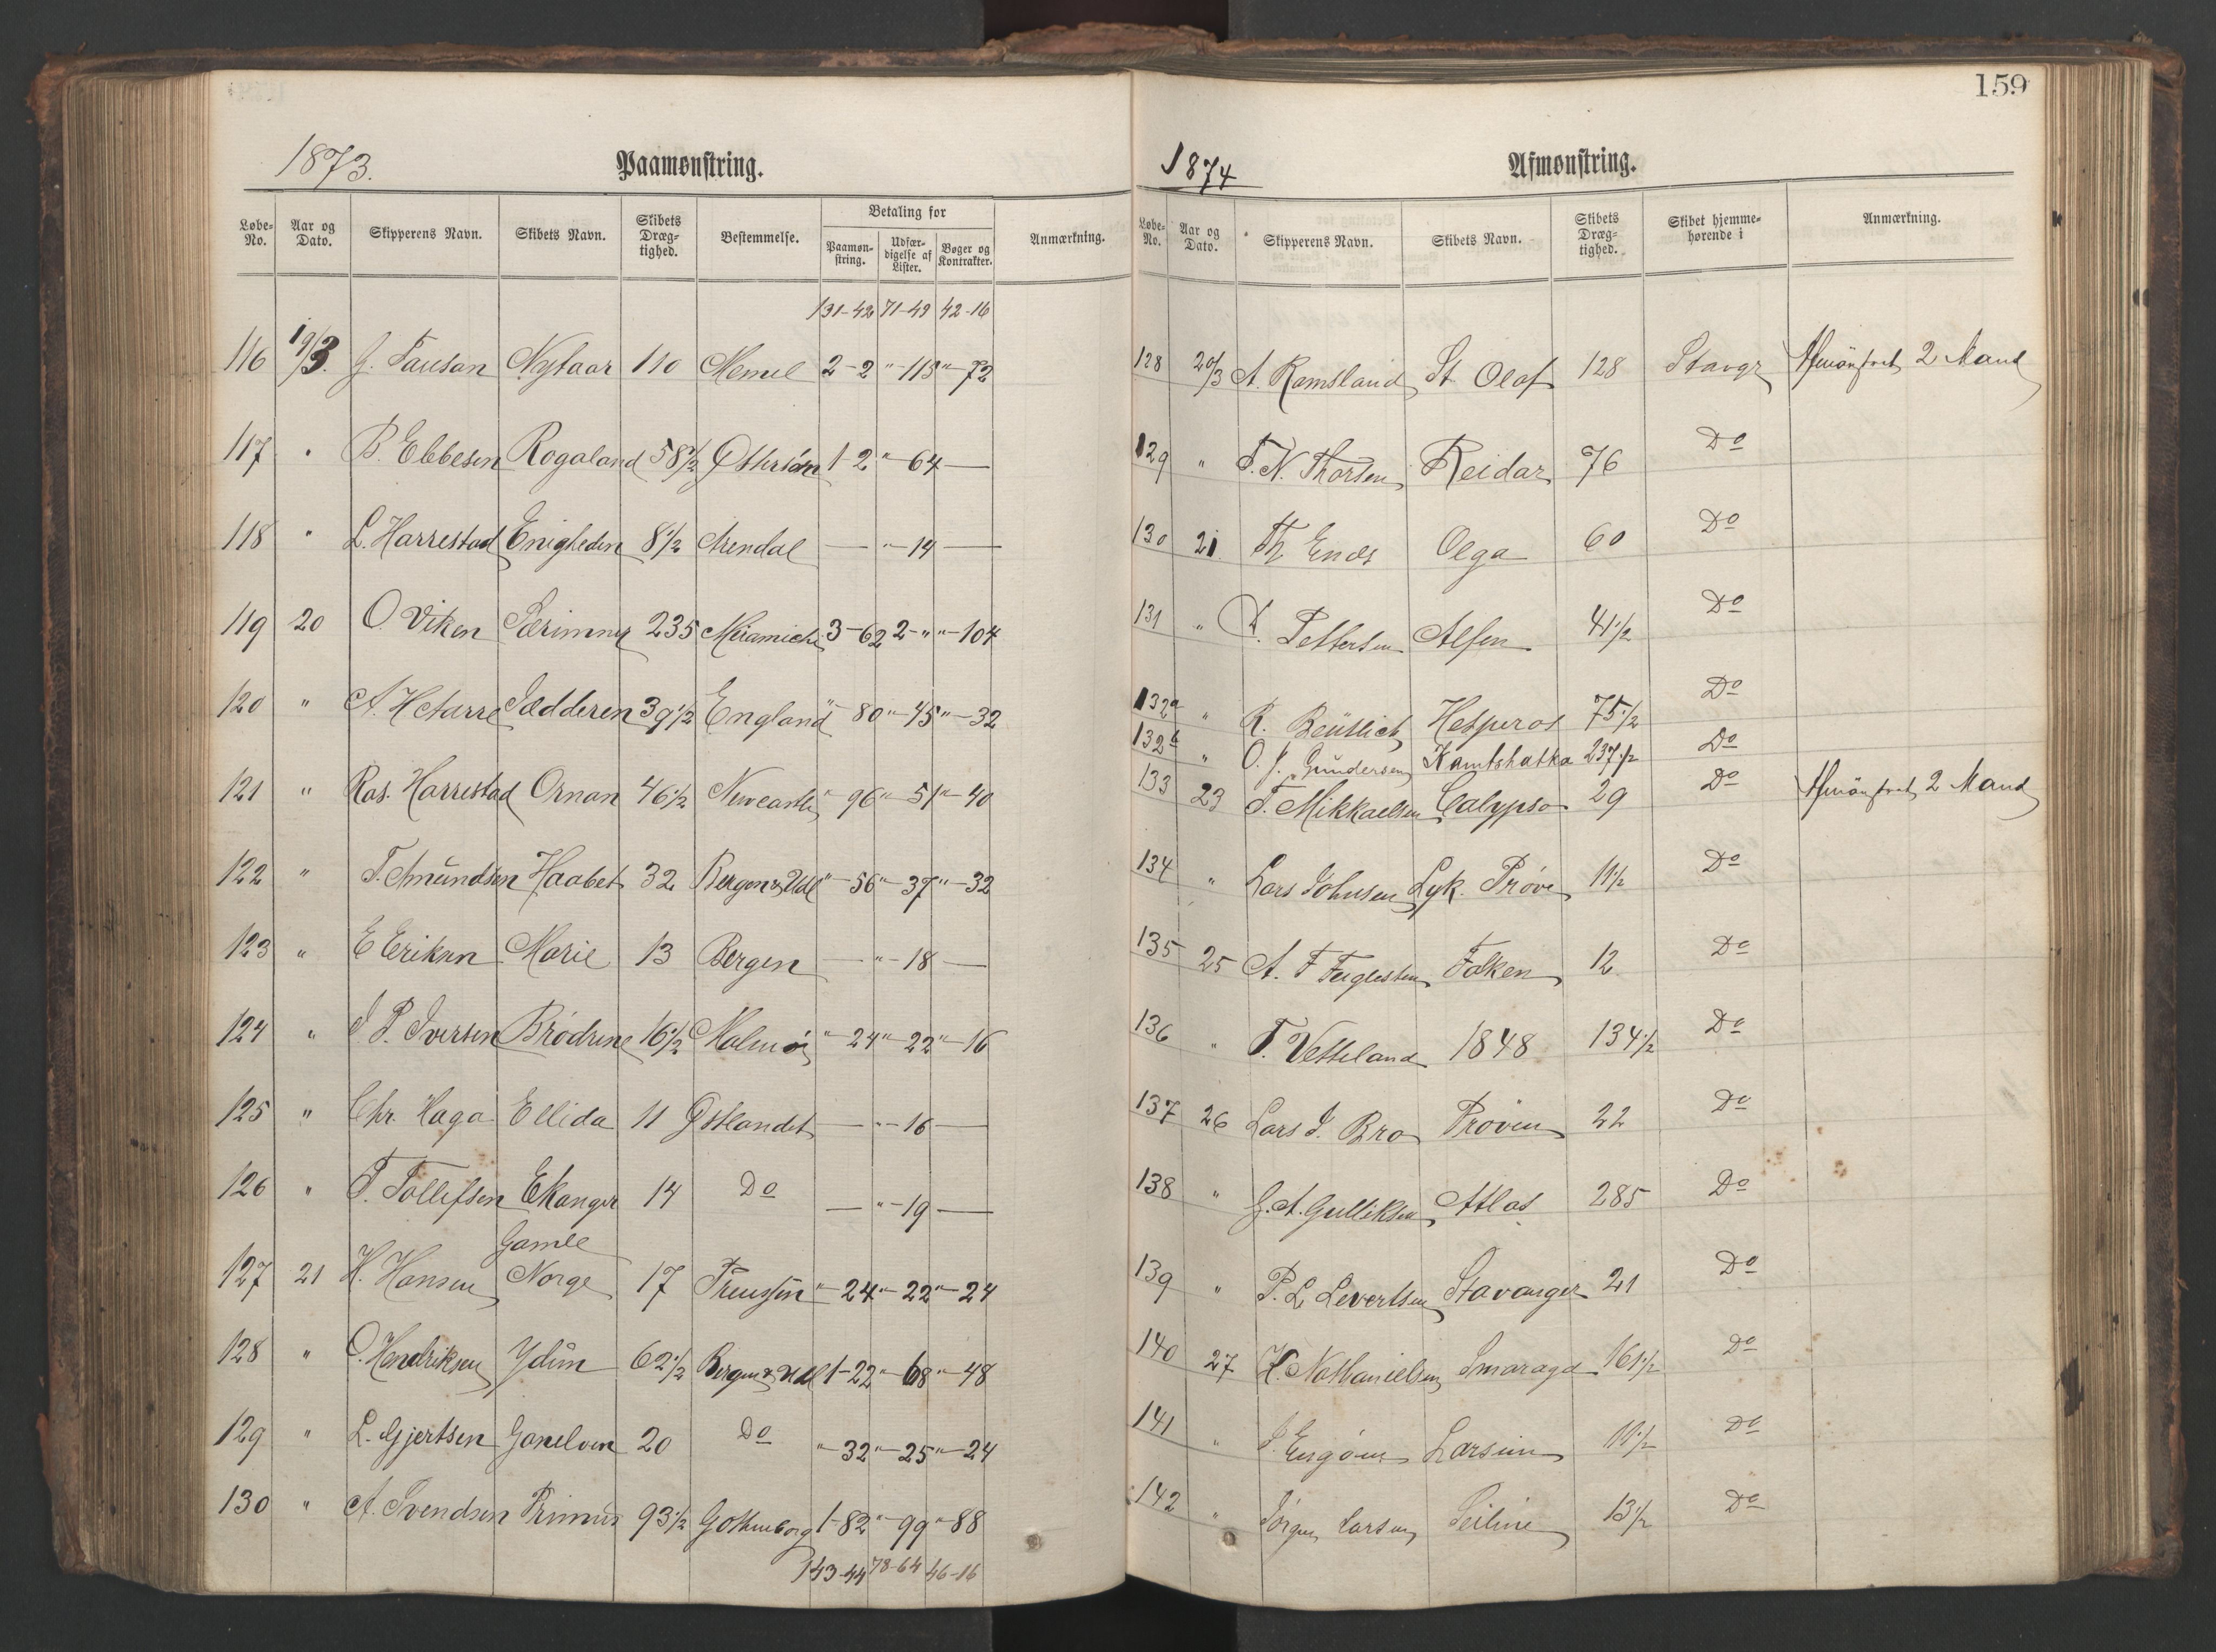 159
1873. Paamønstring.
Løbe-No. Aar og Dato. Skipperens Navn. Skibets Navn. Skibets Dræg-tighed. Bestemmelse. Betaling for Paamøn-string. Udfær-digelse af Lister. Bøger og Kontrakter. Anmærkning.
131-42 71-49 42-16
116 19/3. G. Nytaar 110 Memel 2-2 "-115 "-72
117 " B. Ebbesen Rogaland 58 1/2 1-2 "-64 —
118 " L. Harrestad Enigheden 8 1/2 Arendal — "-14 —
119 20 O. Viken Særimner 235 Miramichi 3-62 2-" "-104
120 " A. Hetarre Jædderen 39 1/2 England "-80 "-45 "-32
121 " Ras. Harrestad Ornan 46 1/2 Newcastle "-96 "-51 "-40
122 " T. Amundsen Haabet 32 Bergen & Udl "-56 "-37 "-32
123 " E Eriksen Marie 13 Bergen — "-18 —
124 " I P. Iversen Brödrene 16 1/2 Malmö "-24 "-22 "-16
125 " Chr. Haga Ellida 11 Østlandet — "-16 —
126 " T. Tollefsen Ekanger 14 Do — "-19 —
Gamle
127 21 H. Hansen Norge 17 Preussen "-24 "-22 "-24
128 " O. Hendriksen Ydun 62 1/2 Bergen & Udl 1-22 "-68 "-48
129 " L. Gjertsen Ganelven 20 Do "-32 "-25 "-24
130 " A. Svendsen Primus 93 1/2 Gothenborg 1-82 "-99 "-88
143-44 78-64 46-16
1874 Afmønstring.
Løbe-No. Aar og Dato. Skipperens Navn. Skibets Navn. Skibets Dræg-tighed. Skibet hjemme-hørende i Anmærkning.
128 20/3 A. Ramsland St. Olaf 128 Stavgr Afmönstret 2 Mand
129 " T. N. Thorsen Reidar 76 Do
130 21. Th Enes Olga 60 Do
131 " Pettersen Alfen 41 1/2 Do
132a " R. Beutlich Hesperos 75 1/2 Do
132b " O. J. Gundersen Kamtshatka 237 1/2 Do
133 23 T. Mikkaelsen Calypso 29 Do Afmönstret 2 Mand
134 " Lars Johnsen Lyk. Prøve 11 1/2 Do
135 25 A. F Fuglesten Falken 12 Do
136 " T. Vetteland 1848 134 1/2 Do
137 26 Lars J. Bro Prøven 22 Do
138 " G. A. Gulliksen Atlas 285 Do
139 " P. L Levertsen Stavanger 21 Do
140 27 H. Nathanielsen Smaragd 161 1/2 Do
141 " Larsine 11 1/2 Do
142 " Jörgen Larsen Seiline 13 1/2 Do